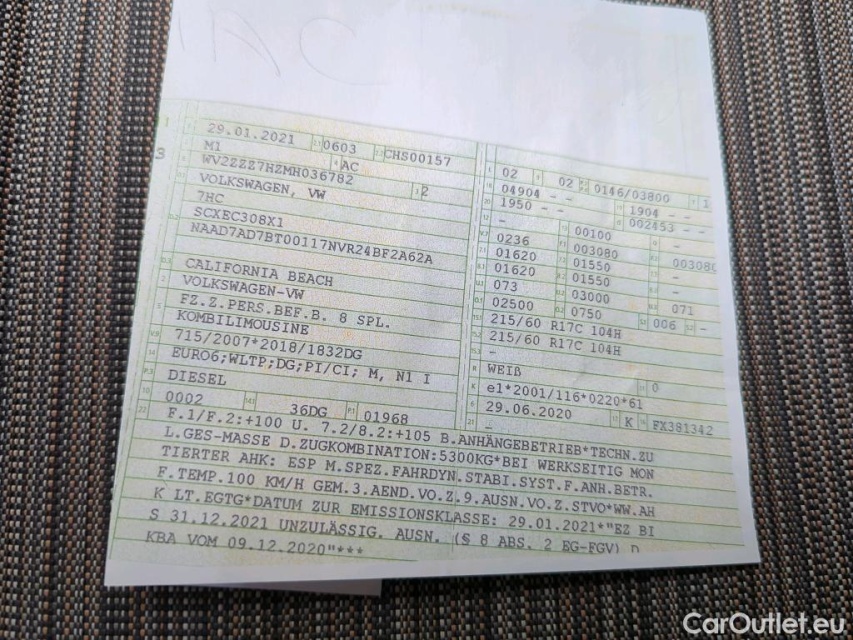 NC
29.01.2021 0603 CHS00157
M1 AC
WV2ZZZ7HZMH036782 2
VOLKSWAGEN, VW
7HC
SCXEC308X1
NAAD7AD7BT00117NVR24BF2A62A
CALIFORNIA BEACH
VOLKSWAGEN-VW
FZ.Z.PERS.BEF.B. 8 SPL.
KOMBILIMOUSINE
715/2007*2018/1832DG
EURO6;WLTP;DG;PI/CI; M, N1 I
DIESEL
0002 36DG 01968
02 02 0146/03800 1
04904 - - 1904 - -
1950 - - 002453 - -
- 00100 -
0236 003080 003080
01620 01550 -
01620 01550 -
073 03000 071
02500 0750 006 -
215/60 R17C 104H
215/60 R17C 104H
-
WEIß 0
e1*2001/116*0220*61
29.06.2020 K FX381342
F.1/F.2:+100 U. 7.2/8.2:+105 B.ANHÄNGEBETRIEB*TECHN.ZU
L.GES-MASSE D.ZUGKOMBINATION:5300KG*BEI WERKSEITIG MON
TIERTER AHK: ESP M.SPEZ.FAHRDYN.STABI.SYST.F.ANH.BETR.
F.TEMP.100 KM/H GEM.3.AEND.VO.Z.9.AUSN.VO.Z.STVO*WW.AH
K LT.EGTG*DATUM ZUR EMISSIONSKLASSE: 29.01.2021*"EZ BI
S 31.12.2021 UNZULÄSSIG. AUSN. (§ 8 ABS. 2 EG-FGV) D
KBA VOM 09.12.2020"***
CarOutlet.eu